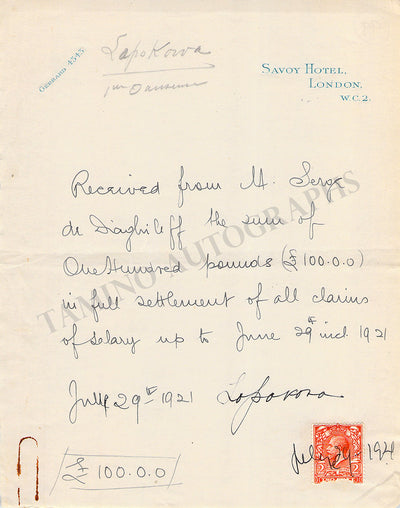 GERRARD 4545
Lapokowa
1ère Danseuse
SAVOY HOTEL,
LONDON,
W.C.2.
Received from M. Serge
de Diaghileff the sum of
One Hundred pounds (£100.0.0)
in full settlement of all claims
of salary up to June 29th incl. 1921
July 29th 1921 Lopokova
July 29. 1921
£ 100.0.0
TAMINO AUTOGRAPHS